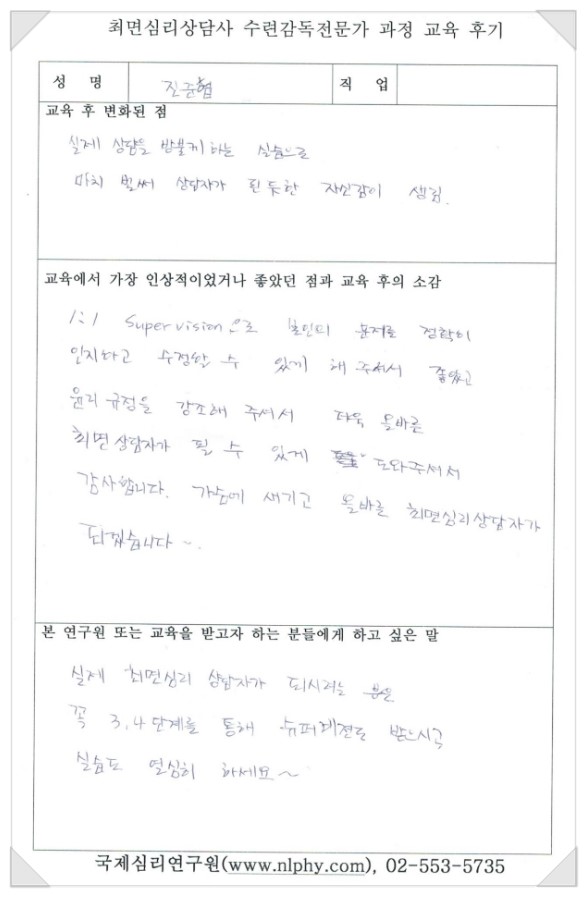 최면심리상담사 수련감독전문가 과정 교육 후기
성 명 진준협 직 업
교육 후 변화된 점
실제 상담을 방불케 하는 실습으로
마치 벌써 상담자가 된 듯한 자신감이 생김.
교육에서 가장 인상적이었거나 좋았던 점과 교육 후의 소감
1:1 Supervision으로 본인의 문제를 정확히
인지하고 수정할 수 있게 해 주셔서 좋았고
윤리규정을 강조해 주셔서 더욱 올바른
최면상담자가 될 수 있게 도와주셔서
감사합니다. 가슴에 새기고 올바른 최면심리상담자가
되겠습니다~.
본 연구원 또는 교육을 받고자 하는 분들에게 하고 싶은 말
실제 최면심리 상담자가 되시려는 분은
꼭 3,4단계를 통해 슈퍼비젼도 받으시고
실습도 열심히 하세요~
국제심리연구원(www.nlphy.com), 02-553-5735